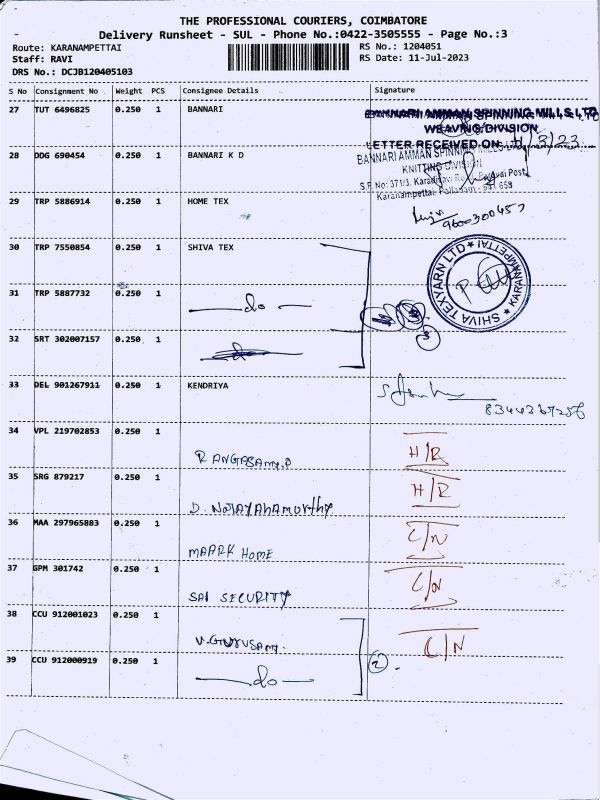 THE PROFESSIONAL COURIERS, COIMBATORE
Delivery Runsheet - SUL - Phone No.:0422-3505555 - Page No.:3
Route: KARANAMPETTAI RS No.: 1204051
Staff: RAVI RS Date: 11-Jul-2023
DRS No.: DCJB120405103
S No Consignment No Weight PCS Consignee Details Signature
27 TUT 6496825 0.250 1 BANNARI
BANNARI AMMAN SPINNING MILLS LTD
WEAVING DIVISION
LETTER RECEIVED ON
28 DDG 690454 0.250 1 BANNARI K D
BANNARI AMMAN SPINNING MILLS
KNITTING DIVISION
S.F. No: 371/3, Karadivavi Road, Post
Karanampettai, Palladam - 641 658
29 TRP 5886914 0.250 1 HOME TEX
9600300457
30 TRP 7550854 0.250 1 SHIVA TEX
SHIVA TEXYARN LTD KARANAMPETTAI
31 TRP 5887732 0.250 1 do
3
32 SRT 302007157 0.250 1 do
33 DEL 901267911 0.250 1 KENDRIYA
34 VPL 219702853 0.250 1 RANGASAmy.P H/R
35 SRG 879217 0.250 1 H/R
36 MAA 297965883 0.250 1 MAARK HOME C/N
37 GPM 301742 0.250 1 SAI SECURITY C/N
38 CCU 912001023 0.250 1 V.GURUSAmy. C/N
39 CCU 912000919 0.250 1 do 2